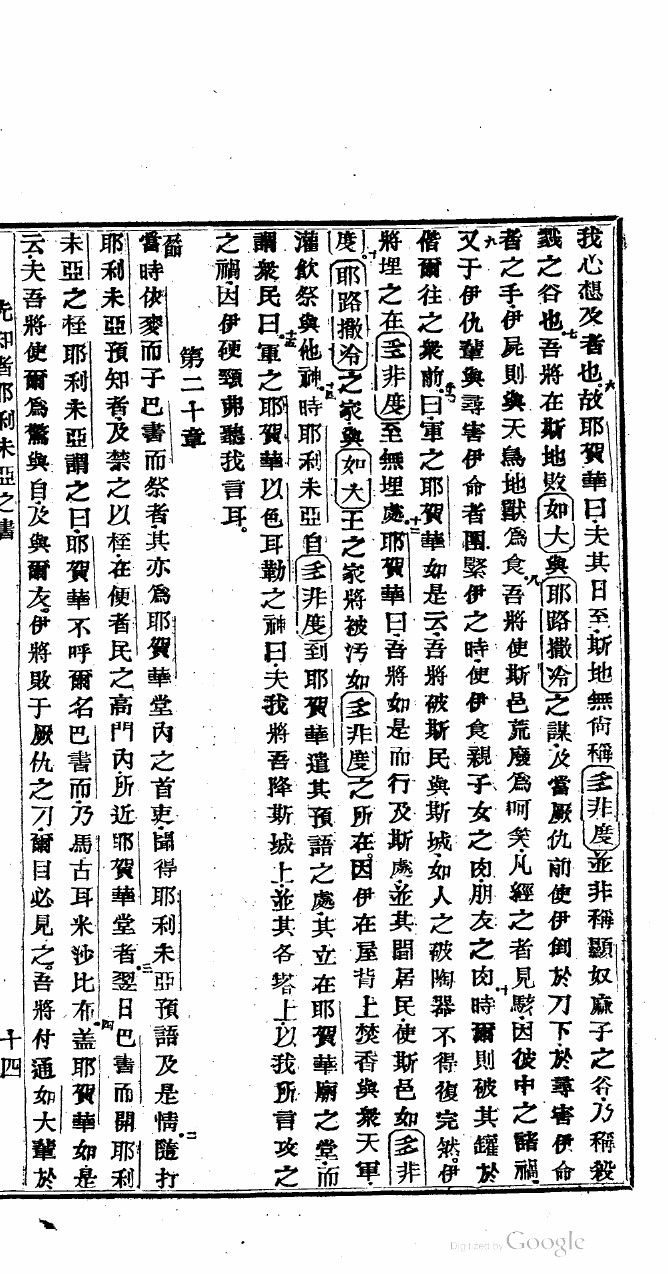 我心想及者也。六故耶賀華曰夫其日至斯地無尙稱多非度並非稱顯奴麻子之谷乃稱殺
戮之谷也七吾將在斯地敗如大與耶路撒冷之謀及當厥仇前使伊倒於刀下於尋害伊命
者之手伊屍則與天鳥地獸爲食八吾將使斯邑荒廢爲呵矣凡經之者見駭因彼中之諸禍
九又于伊仇輩與尋害伊命者團緊伊之時使伊食親子女之肉朋友之肉十時爾則破其罐於
偕爾往之衆前十一曰軍之耶賀華如是云吾將破斯民與斯城如人之破陶器不得復完然。伊
將埋之在多非度至無埋處十二耶賀華曰吾將如是而行及斯處並其間居民使斯邑如多非
度。耶路撒冷之家與如大王之家將被汚如多非度之所在。因伊在屋背上焚香與衆天軍
灌飮祭與他神十四時耶利未亞自多非度到耶賀華遣其預語之處其立在耶賀華廟之堂而
謂衆民曰十五軍之耶賀華以色耳勒之神曰夫我將吾降斯城上並其各塔上以我所言攻之
之禍因伊硬頸弗聽我言耳。
第二十章
一節當時依麥而子巴書而祭者其亦爲耶賀華堂內之首吏聞得耶利未亞預語及是情二隨打
耶利未亞預知者及禁之以桎在便者民之高門內所近耶賀華堂者三翌日巴書而開耶利
未亞之桎耶利未亞謂之曰耶賀華不呼爾名巴書而乃馬古耳米沙比布四盖耶賀華如是
云夫吾將使爾爲驚與自及與爾友。伊將敗于厥仇之刀爾目必見之。吾將付通如大輩於
先知者耶利未亞之書 十四
Digitized by Google